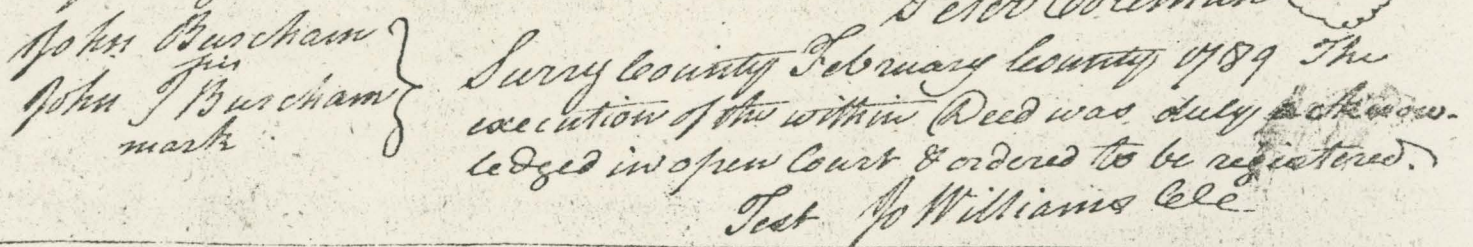 Peter Coleman
John Burcham
his
John J Burcham
mark
Surry County February County 1789 The
execution of the within Deed was duly acknow-
ledged in open Court & ordered to be registered.
Test Jo Williams Clk